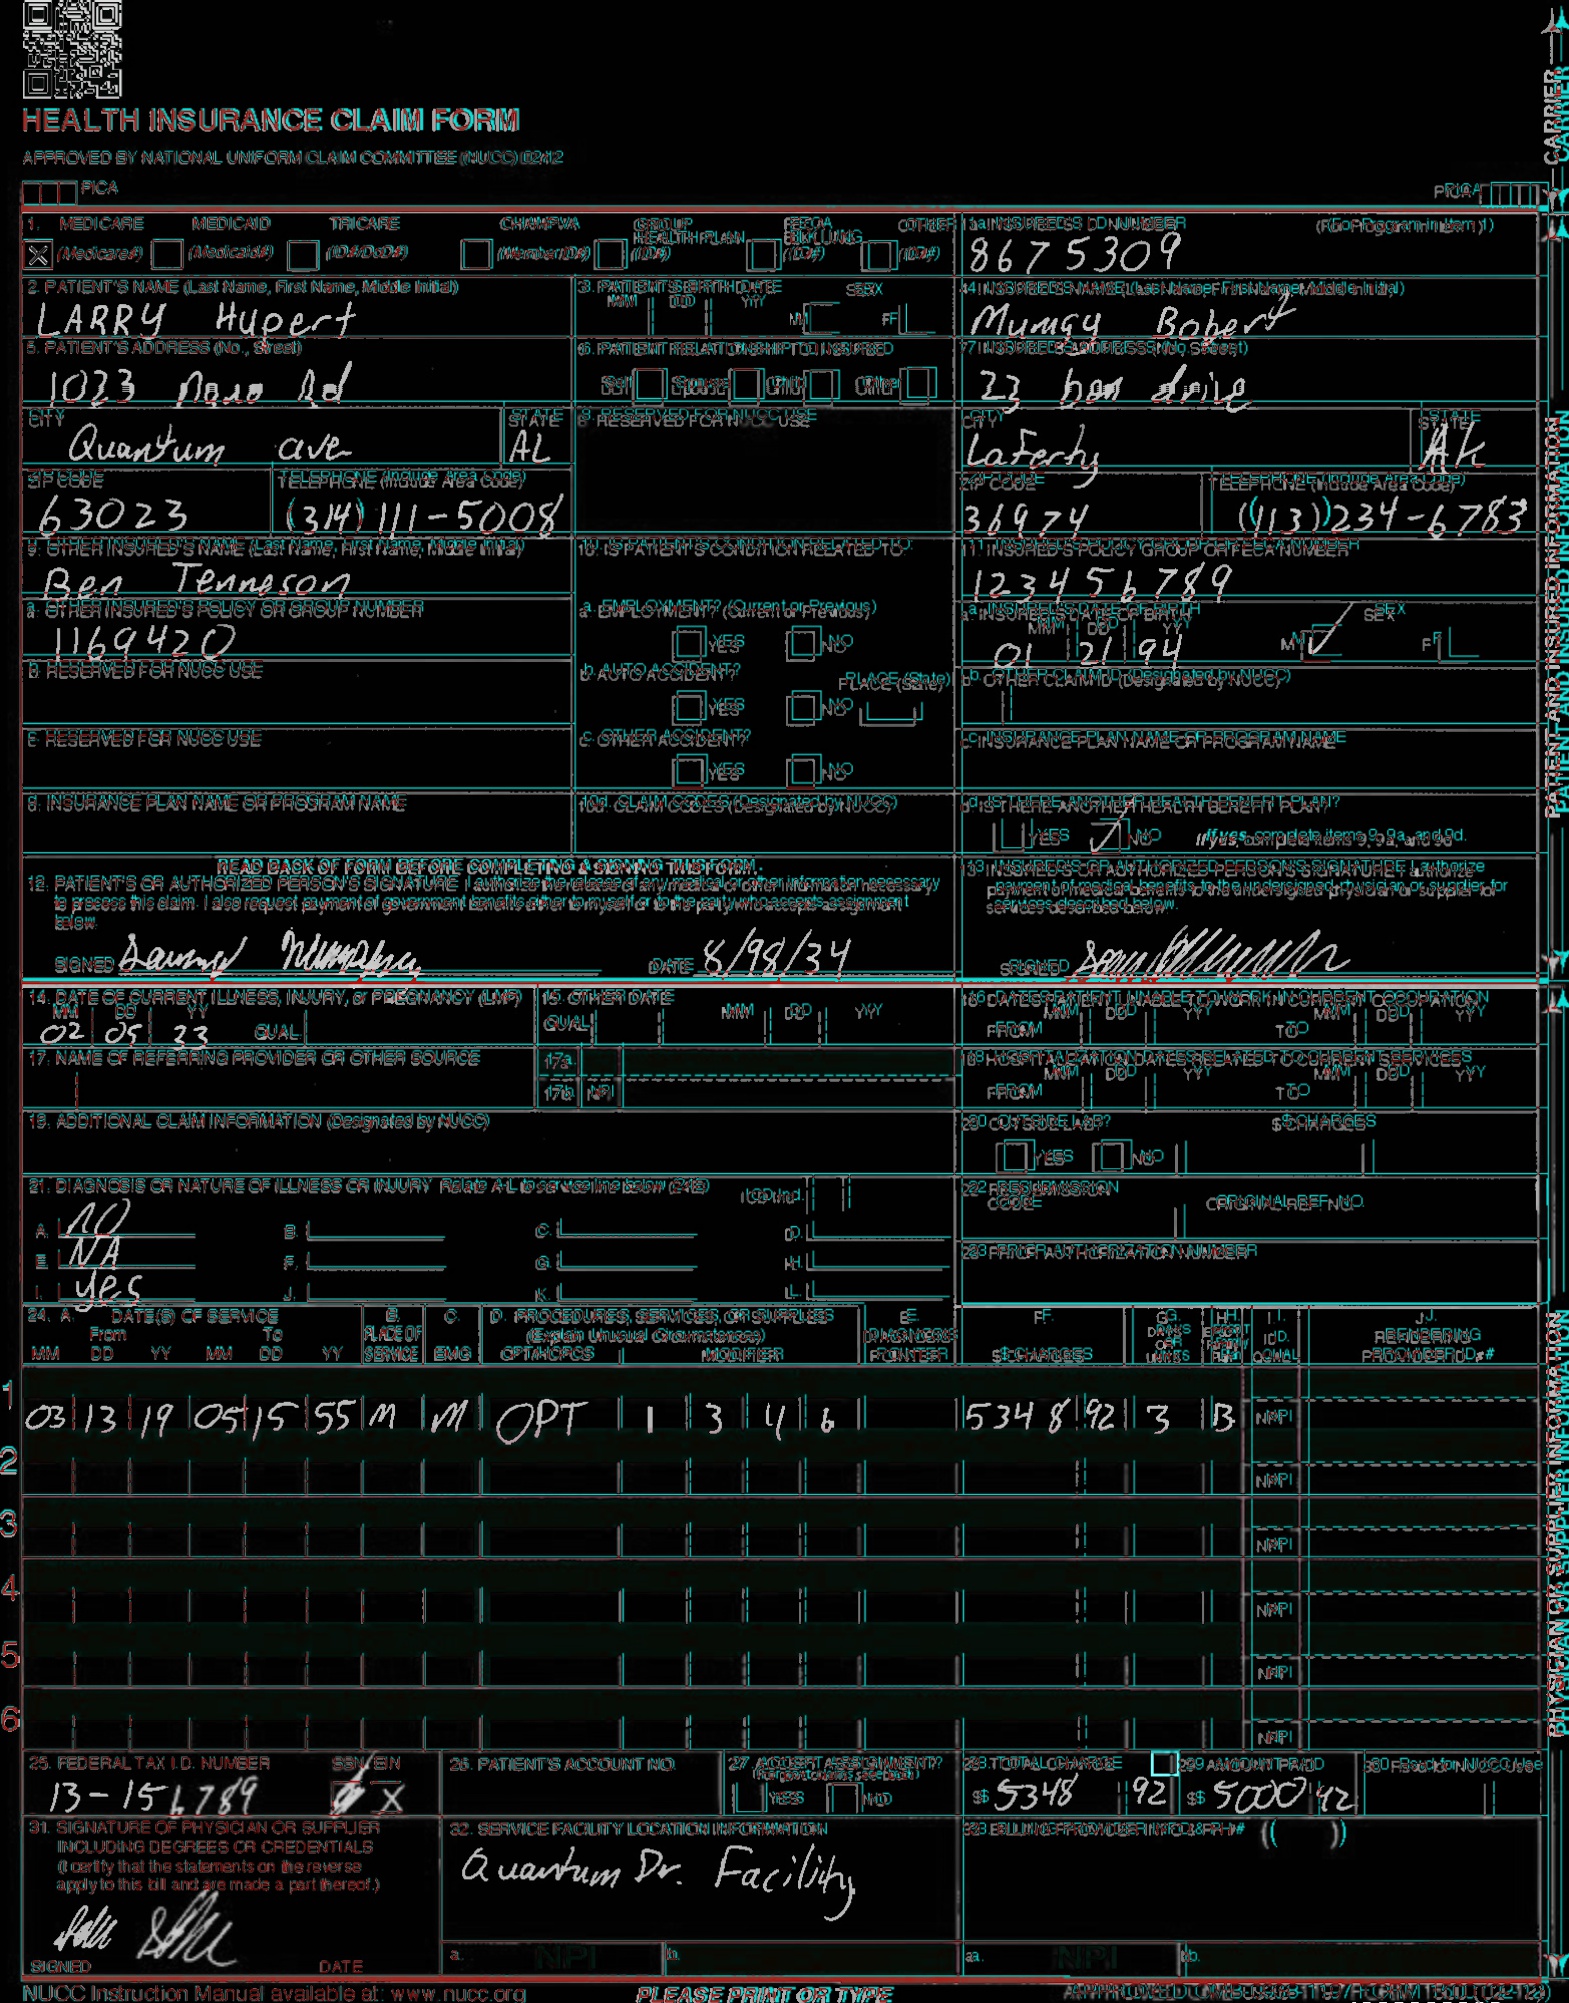 HEALTH INSURANCE CLAIM FORM
APPROVED BY NATIONAL UNIFORM CLAIM COMMITTEE (NUCC) 02/12
PICA
PICA
CARRIER
1. MEDICARE MEDICAID TRICARE CHAMPVA GROUP HEALTH PLAN FECA BLK LUNG OTHER
(Medicare#) (Medicaid#) (ID#/DoD#) (Member ID#) (ID#) (ID#) (ID#)
1a. INSURED'S I.D. NUMBER (For Program in Item 1)
8675309
2. PATIENT'S NAME (Last Name, First Name, Middle Initial)
LARRY Hupert
3. PATIENT'S BIRTH DATE SEX
MM DD YY M F
4. INSURED'S NAME (Last Name, First Name, Middle Initial)
Mumgy Bobert
5. PATIENT'S ADDRESS (No., Street)
1023 Rd
6. PATIENT RELATIONSHIP TO INSURED
Self Spouse Child Other
7. INSURED'S ADDRESS (No., Street)
23 drive
CITY STATE
Quantum ave AL
8. RESERVED FOR NUCC USE
CITY STATE
Laferty AK
ZIP CODE TELEPHONE (Include Area Code)
63023 (314) 111-5008
ZIP CODE TELEPHONE (Include Area Code)
36974 (113) 234-6783
9. OTHER INSURED'S NAME (Last Name, First Name, Middle Initial)
Ben Tenneson
10. IS PATIENT'S CONDITION RELATED TO:
11. INSURED'S POLICY GROUP OR FECA NUMBER
123456789
a. OTHER INSURED'S POLICY OR GROUP NUMBER
1169420
a. EMPLOYMENT? (Current or Previous)
YES NO
a. INSURED'S DATE OF BIRTH SEX
MM DD YY
01 21 94 M F
b. RESERVED FOR NUCC USE
b. AUTO ACCIDENT? PLACE (State)
YES NO
b. OTHER CLAIM ID (Designated by NUCC)
c. RESERVED FOR NUCC USE
c. OTHER ACCIDENT?
YES NO
c. INSURANCE PLAN NAME OR PROGRAM NAME
d. INSURANCE PLAN NAME OR PROGRAM NAME
10d. CLAIM CODES (Designated by NUCC)
d. IS THERE ANOTHER HEALTH BENEFIT PLAN?
YES NO If yes, complete items 9, 9a, and 9d.
PATIENT AND INSURED INFORMATION
READ BACK OF FORM BEFORE COMPLETING & SIGNING THIS FORM.
12. PATIENT'S OR AUTHORIZED PERSON'S SIGNATURE I authorize the release of any medical or other information necessary
to process this claim. I also request payment of government benefits either to myself or to the party who accepts assignment
below.
SIGNED DATE 8/98/34
13. INSURED'S OR AUTHORIZED PERSON'S SIGNATURE I authorize
payment of medical benefits to the undersigned physician or supplier for
services described below.
SIGNED
14. DATE OF CURRENT ILLNESS, INJURY, or PREGNANCY (LMP)
MM DD YY
02 05 23 QUAL
15. OTHER DATE
QUAL MM DD YY
16. DATES PATIENT UNABLE TO WORK IN CURRENT OCCUPATION
MM DD YY MM DD YY
FROM TO
17. NAME OF REFERRING PROVIDER OR OTHER SOURCE
17a.
17b. NPI
18. HOSPITALIZATION DATES RELATED TO CURRENT SERVICES
MM DD YY MM DD YY
FROM TO
19. ADDITIONAL CLAIM INFORMATION (Designated by NUCC)
20. OUTSIDE LAB? $ CHARGES
YES NO
21. DIAGNOSIS OR NATURE OF ILLNESS OR INJURY Relate A-L to service line below (24E) ICD Ind.
A. NO B. C. D.
E. NA F. G. H.
I. yes J. K. L.
22. RESUBMISSION CODE ORIGINAL REF. NO.
23. PRIOR AUTHORIZATION NUMBER
24. A. DATE(S) OF SERVICE B. C. D. PROCEDURES, SERVICES, OR SUPPLIES E. F. G. H. I. J.
From To PLACE OF (Explain Unusual Circumstances) DIAGNOSIS DAYS OR EPSDT Family ID. RENDERING
MM DD YY MM DD YY SERVICE EMG CPT/HCPCS MODIFIER POINTER $ CHARGES UNITS Plan QUAL. PROVIDER ID. #
1
03 13 19 05 15 55 M M OPT 1 3 4 6 5348 92 3 B NPI
2
NPI
3
NPI
4
NPI
5
NPI
6
NPI
PHYSICIAN OR SUPPLIER INFORMATION
25. FEDERAL TAX I.D. NUMBER SSN EIN
13-156789 X
26. PATIENT'S ACCOUNT NO.
27. ACCEPT ASSIGNMENT?
(For govt. claims, see back)
YES NO
28. TOTAL CHARGE
$ 5348 92
29. AMOUNT PAID
$ 5000 42
30. Rsvd for NUCC Use
31. SIGNATURE OF PHYSICIAN OR SUPPLIER
INCLUDING DEGREES OR CREDENTIALS
(I certify that the statements on the reverse
apply to this bill and are made a part thereof.)
SIGNED DATE
32. SERVICE FACILITY LOCATION INFORMATION
Quantum Dr. Facility
a. NPI b.
33. BILLING PROVIDER INFO & PH # ( )
a. NPI b.
NUCC Instruction Manual available at: www.nucc.org
PLEASE PRINT OR TYPE
APPROVED OMB-0938-1197 FORM 1500 (02-12)